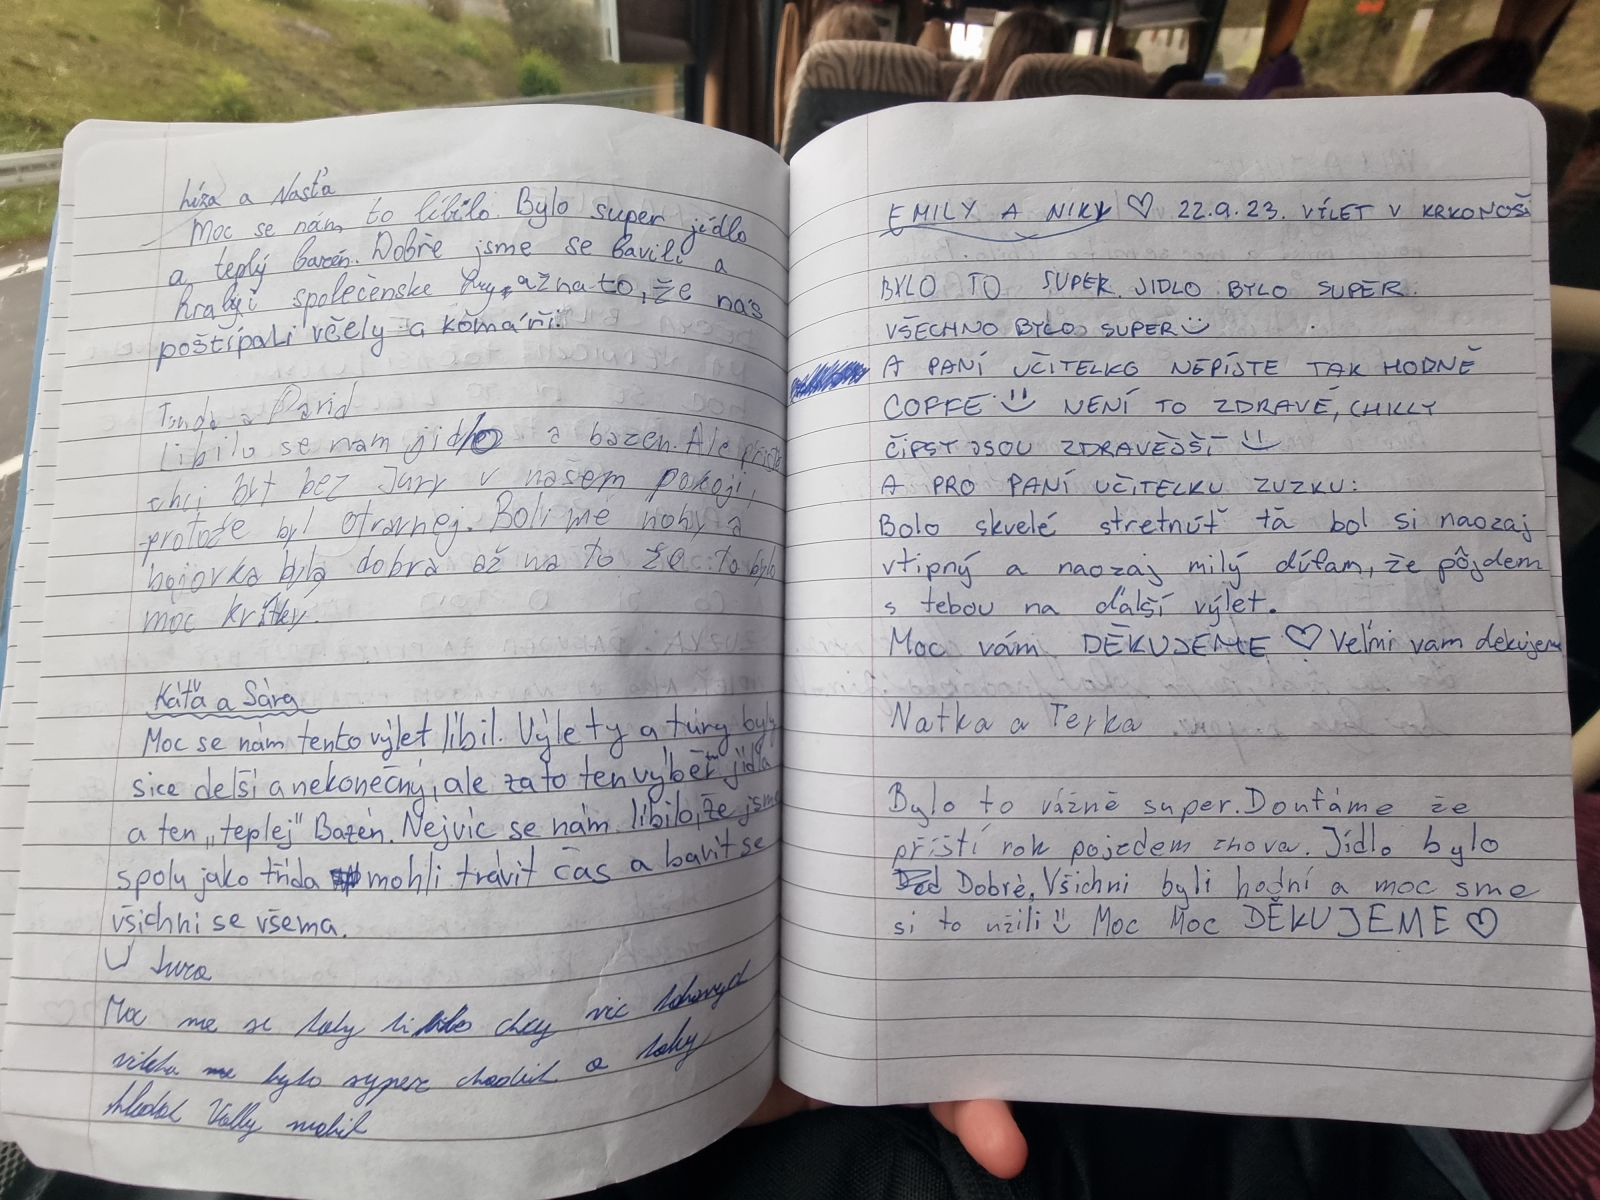 Líza a Nasťa
Moc se nám to líbilo. Bylo super jídlo
a teplý bazén. Dobře jsme se bavili a
hráli společenske hry, ažnato, že nás
poštípali včely a komáři!
a David
Libilo se nam jidlo a bazen. Ale příště
chci být bez Jury v našem pokoji,
protože byl otravnej. Bolí mě nohy a
bojovka byla dobrá až na to že to bylo
moc krátky.
Káťa a Sára
Moc se nám tento výlet líbil. Výlety a túry byly
sice delší a nekonečný, ale zato ten výběr jídla
a ten „teplej" Bazén. Nejvíc se nám líbilo, že jsme
spolu jako třída mohli trávit čas a bavit se
všichni se všema.
Jura
Moc me se taky libilo chcy vic
bylo syper chodit a taky
hledat Vally mobil
EMILY A NIKY ♡ 22.9.23. VÍLET V KRKONOŠÍ
BYLO TO SUPER. JIDLO BYLO SUPER.
VŠECHNO BYLO SUPER
A PANÍ UČITELKO NEPÍJTE TAK HODNĚ
COFFE NENÍ TO ZDRAVÉ, CHILLY
ČIPSY JSOU ZDRAVĚJŠÍ
A PRO PANÍ UČITELKU ZUZKU:
Bolo skvelé stretnúť ťa bol si naozaj
vtipný a naozaj milý dúfam, že pôjdem
s tebou na ďalší výlet.
Moc vám DĚKUJEME ♡ Veľmi vam dekujeme
Natka a Terka
Bylo to vážně super. Doufáme že
příští rok pojedem znova. Jídlo bylo
Dobré, Všichni byli hodní a moc sme
si to užili Moc Moc DĚKUJEME ♡